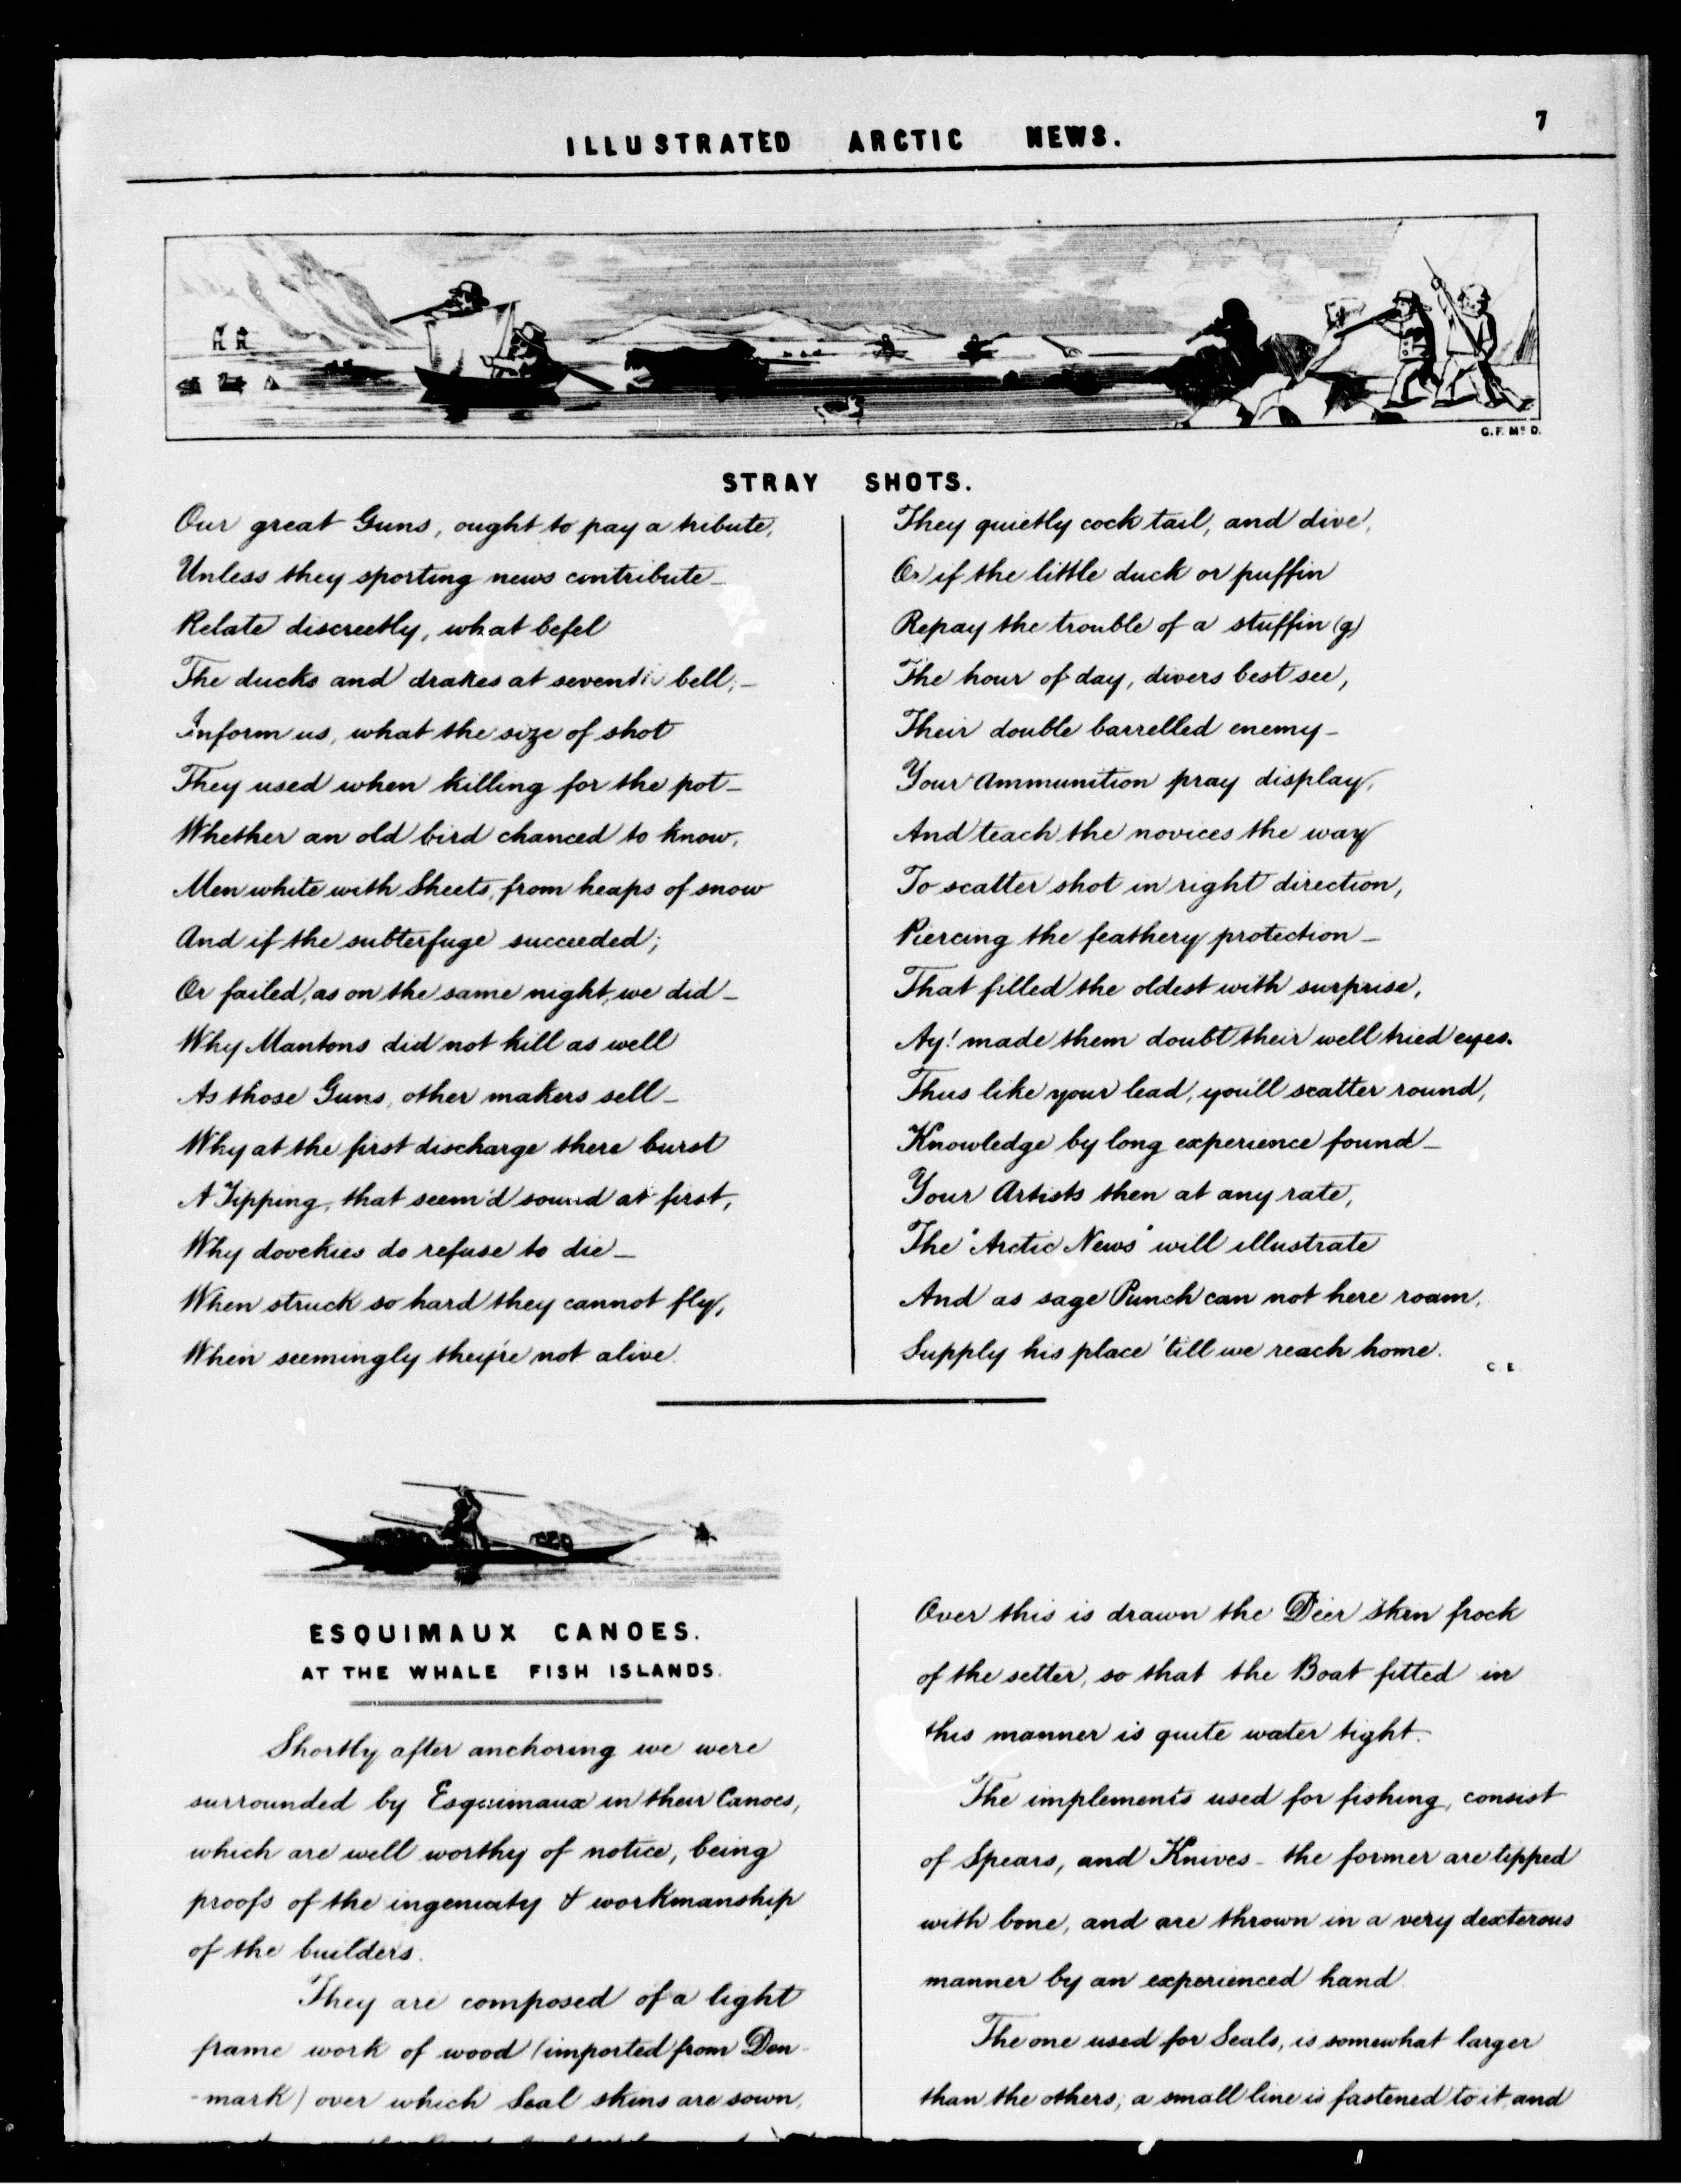 7
ILLUSTRATED ARCTIC NEWS.
G. F. McD.
STRAY SHOTS.
Our great Guns, ought to pay a tribute,
Unless they sporting news contribute_
Relate discreetly, what befel
The ducks and drakes at seventh bell,_
Inform us, what the size of shot
They used when killing for the pot_
Whether an old bird chanced to know,
Men white with Sheets, from heaps of snow
And if the subterfuge succeeded;
Or failed, as on the same night, we did_
Why Mantons did not kill as well
As those Guns, other makers sell_
Why at the first discharge there burst
A Tipping, that seem'd sound at first,
Why dovekies do refuse to die_
When struck so hard they cannot fly,
When seemingly they're not alive.
They quietly cock tail, and dive,
Or if the little duck or puffin
Repay the trouble of a stuffin (g)
The hour of day, divers best see,
Their double barrelled enemy_
Your Ammunition pray display,
And teach the novices the way
To scatter shot in right direction,
Piercing the feathery protection_
That filled the oldest with surprise,
Ay! made them doubt their well tried eyes.
Thus like your lead, you'll scatter round,
Knowledge by long experience found_
Your Artists then at any rate,
The "Arctic News" will illustrate
And as sage Punch can not here roam,
Supply his place 'till we reach home.
ESQUIMAUX CANOES.
AT THE WHALE FISH ISLANDS.
Shortly after anchoring we were
surrounded by Esquimaux in their Canoes,
which are well worthy of notice, being
proofs of the ingenuity & workmanship
of the builders.
They are composed of a light
frame work of wood (imported from Den-
-mark) over which Seal skins are sown,
Over this is drawn the Deer skin frock
of the setter, so that the Boat fitted in
this manner is quite water tight.
The implements used for fishing, consist
of Spears, and Knives_ the former are tipped
with bone, and are thrown in a very dexterous
manner by an experienced hand
The one used for Seals, is somewhat larger
than the others; a small line is fastened to it, and